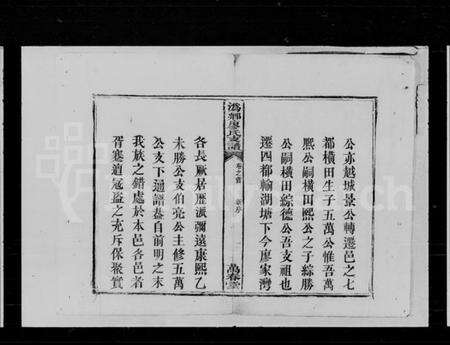 公亦越城景公轉遷邑之七
都橫田生子五萬公惟吾萬
熙公嗣橫田熙公之子綜勝
公嗣橫田綜德公吾支祖也
遷四都輸湖塘下今廖家灣
溈鄉廖氏支譜
卷之首
萬春堂
各長厥居歷派彌遠康熙乙
未勝公支伯亮公主修五萬
公支下通譜葢自前明之末
我族之錯處於本邑各邑者
胥蹇遒冠盜之充斥保聚實